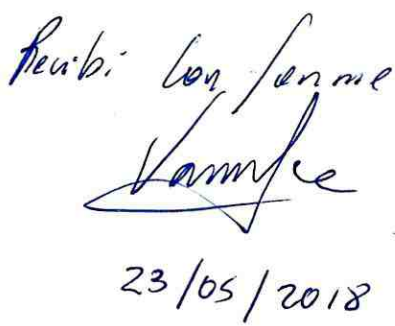 Recibí Conforme
23/05/2018